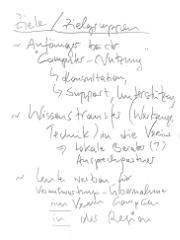 Ziele / Zielgruppen
~ Anfänger bei der
"Computer-Nutzung"
↳ Konsultation,
↳ Support, Unterstützung
~ Wissenstransfer (Werkzeuge,
Technik) in die Vereine
⇒ Lokale Berater (?)
Ansprechpartner
~ Leute werben für
Verantwortungs-Übernahme
im Verein Computer
in der Region